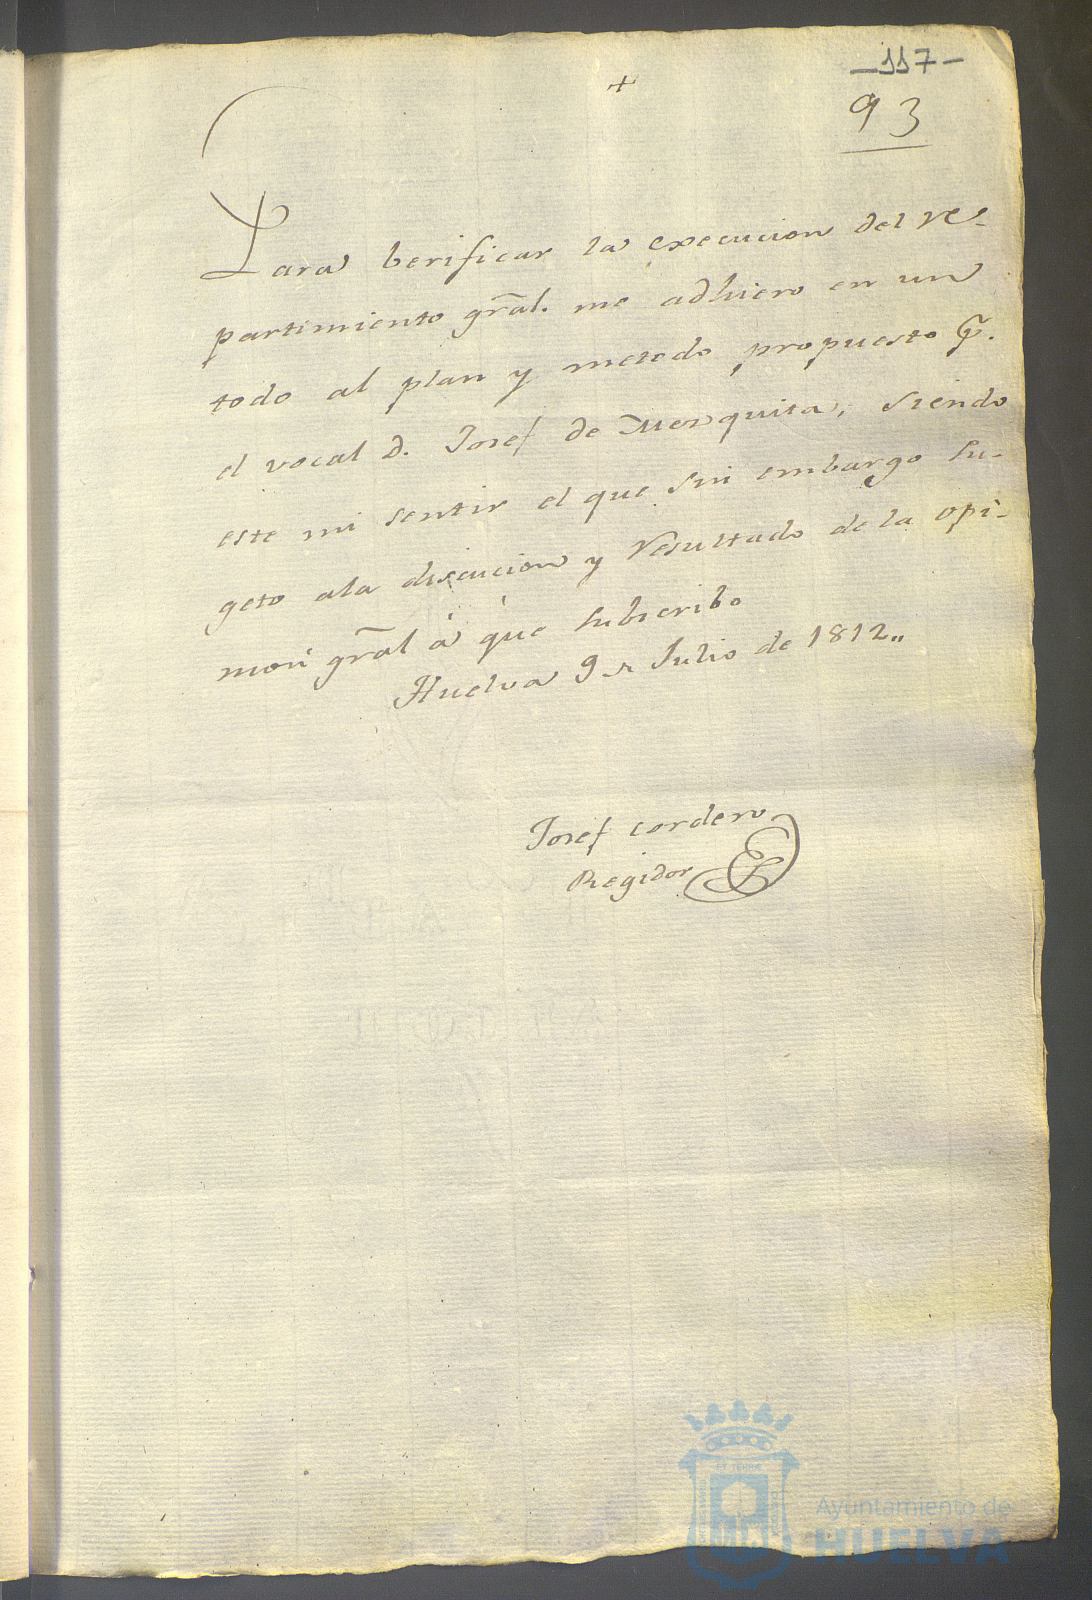 -117-
+
93
Para berificar la execucion del re-
partimiento gràl. me adhiero en un
todo al plan y metodo propuesto p.r
el vocal D. Josef de Mezquita, siendo
este mi sentir el que sin embargo su-
geto ala discucion y resultado de la opi-
nion gràl à que subscribo
Huelva 9 Julio de 1812„
Josef cordero
Regidor
Ayuntamiento de
HUELVA